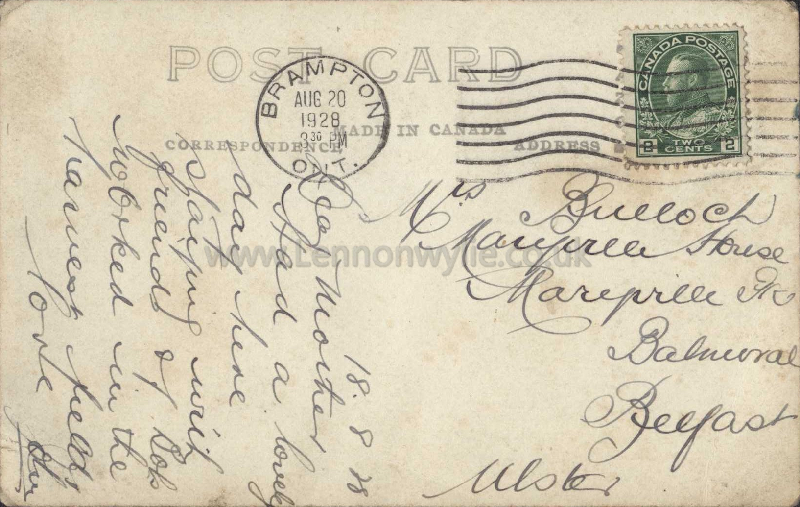 POST CARD
BRAMPTON
AUG 20
1928
3 30 PM
ONT.
MADE IN CANADA
CORRESPONDENCE
ADDRESS
CANADA POSTAGE
2 TWO CENTS 2
18.8.28
Dear Mother
Had a lovely
day here
Staying with
friends of Bobs
Worked in the
harvest fields
love
Mrs Bulloch
House
Balmoral
Belfast
Ulster
www.Lennonwylie.co.uk